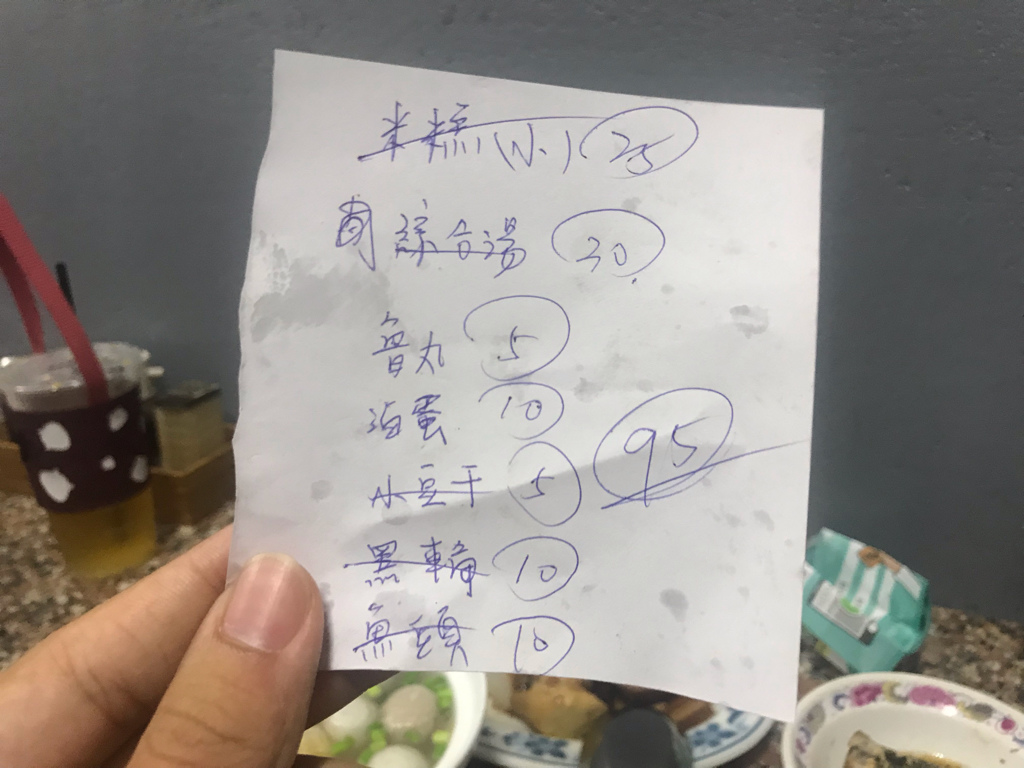 米糕(小) 25
綜合湯 30
魯丸 5
滷蛋 10
小豆干 5
黑輪 10
魚頭 10
95